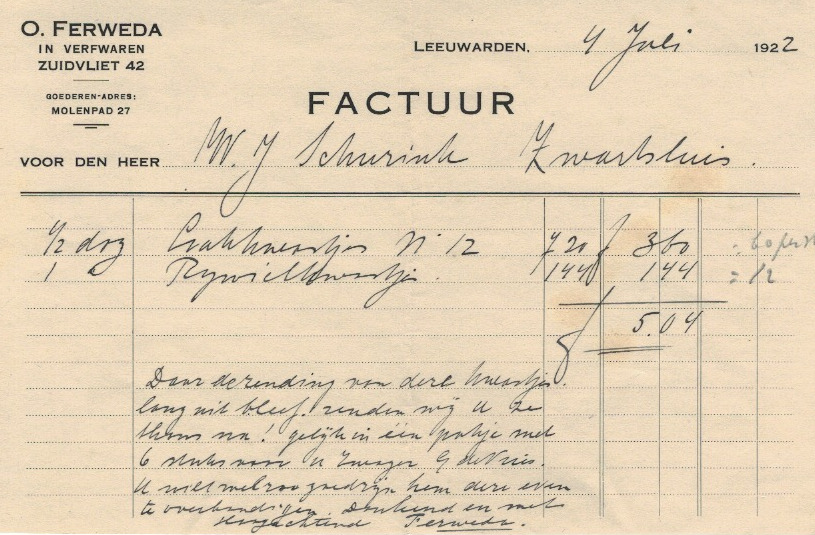 O. FERWEDA
IN VERFWAREN
ZUIDVLIET 42
GOEDEREN-ADRES:
MOLENPAD 27
LEEUWARDEN, 4 Juli 1922
FACTUUR
VOOR DEN HEER W. J Schurink Zwartsluis.
1/2 doz Lakkwastjes N° 12 7 20 f 360
1 " Rijwielkwastjes 144 144 = 12
f 5.04
Daar de zending van deze kwastjes
lang uit bleef, zenden wij U ze
thans na! gelijk in één pakje met
6 stuks voor U zwager G de Vries.
U wilt wel zoo goed zijn hem deze even
te overhandigen. Dankend en met
Hoogachtend Ferweda.